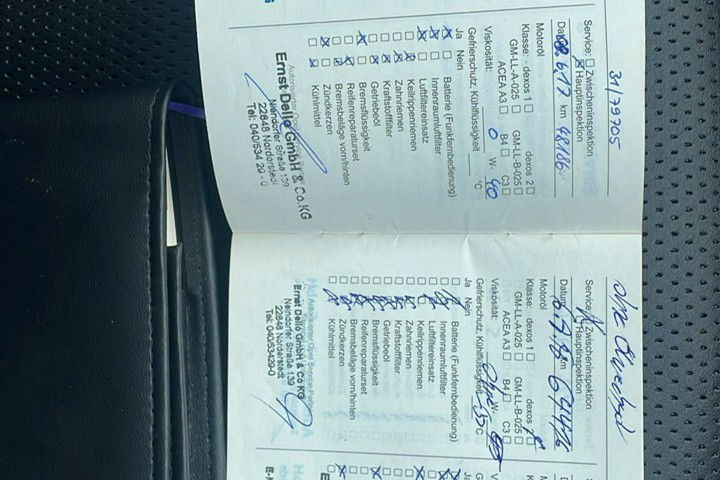 31/79905
Service: ☐ Zwischeninspektion
☒ Hauptinspektion
Datum 6.17 km 48186
Motoröl
Klasse: dexos 1 ☐ dexos 2 ☐
GM-LL-A-025 ☐ GM-LL-B-025 ☐
ACEA A3 ☐ B4 ☐ C3 ☐
Viskosität: 0 W- 40
Gefrierschutz, Kühlflüssigkeit °C
Ja Nein
☒ ☐ Batterie (Funkfernbedienung)
☒ ☐ Innenraumluftfilter
☒ ☐ Luftfiltereinsatz
☐ ☒ Keilrippenriemen
☐ ☒ Zahnriemen
☐ ☒ Kraftstofffilter
☐ ☒ Getriebeöl
☒ ☐ Bremsflüssigkeit
☐ ☒ Reifenreparaturset
☐ ☒ Bremsbeläge vorn/hinten
☒ ☐ Zündkerzen
☐ ☒ Kühlmittel
Ernst Dello GmbH & Co.KG
Niendorfer Straße 139
22848 Norderstedt
Tel: 040/534 29-0
Service: Zwischeninspektion
Hauptinspektion
Datum km
Motoröl
Klasse: dexos 1 ☐ dexos 2
GM-LL-A-025 ☐ GM-LL-B-025 ☐
ACEA A3 ☐ B4 ☐ C3 ☐
Viskosität: W-
Gefrierschutz, Kühlflüssigkeit -35 °C
Ja Nein
Batterie (Funkfernbedienung)
Innenraumluftfilter
Luftfiltereinsatz
Keilrippenriemen
Zahnriemen
Kraftstofffilter
Getriebeöl
Bremsflüssigkeit
Reifenreparaturset
Bremsbeläge vorn/hinten
Zündkerzen
Kühlmittel
Ernst Dello GmbH & Co KG
Niendorfer Straße 139
22848 Norderstedt
Tel: 040/53429-0